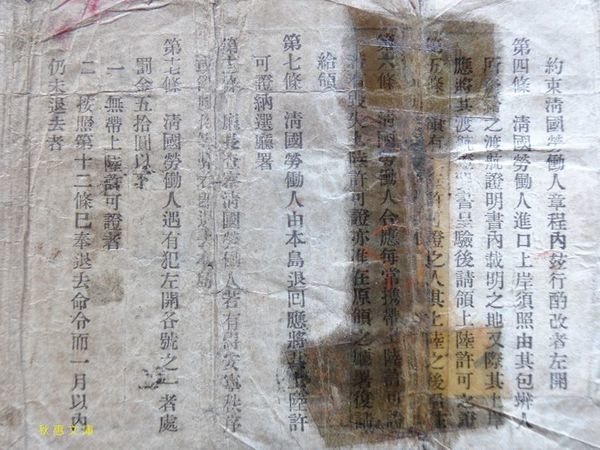 約束清國勞働人章程內玆行酌改者左開
第四條　清國勞働人進口上岸須照由其包辨人
之渡航證明書內載明之地又際其上岸
應將其渡航證明書呈驗後請領上陸許可之證
第五條　領有上陸許可證之人其上陸之後
第六條　清國勞働人合應每常携帶上陸許可證
失上陸許可證亦准在原領之廳署復
給領
第七條　清國勞働人由本島退回應將其上陸許
可證納還廳署
條　廳長查察清國勞働人若有害安寧秩序
本島
第十七條　清國勞働人遇有犯左開各號之一者處
罰金五拾圓以下
一　無帶上陸許可證者
二　按照第十二條已奉退去命令而一月以內
仍未退去者
秋惠文庫